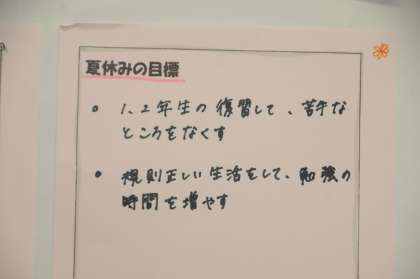 夏休みの目標
• 1、2年生の復習して、苦手な
ところをなくす
• 規則正しい生活をして、勉強の
時間を増やす